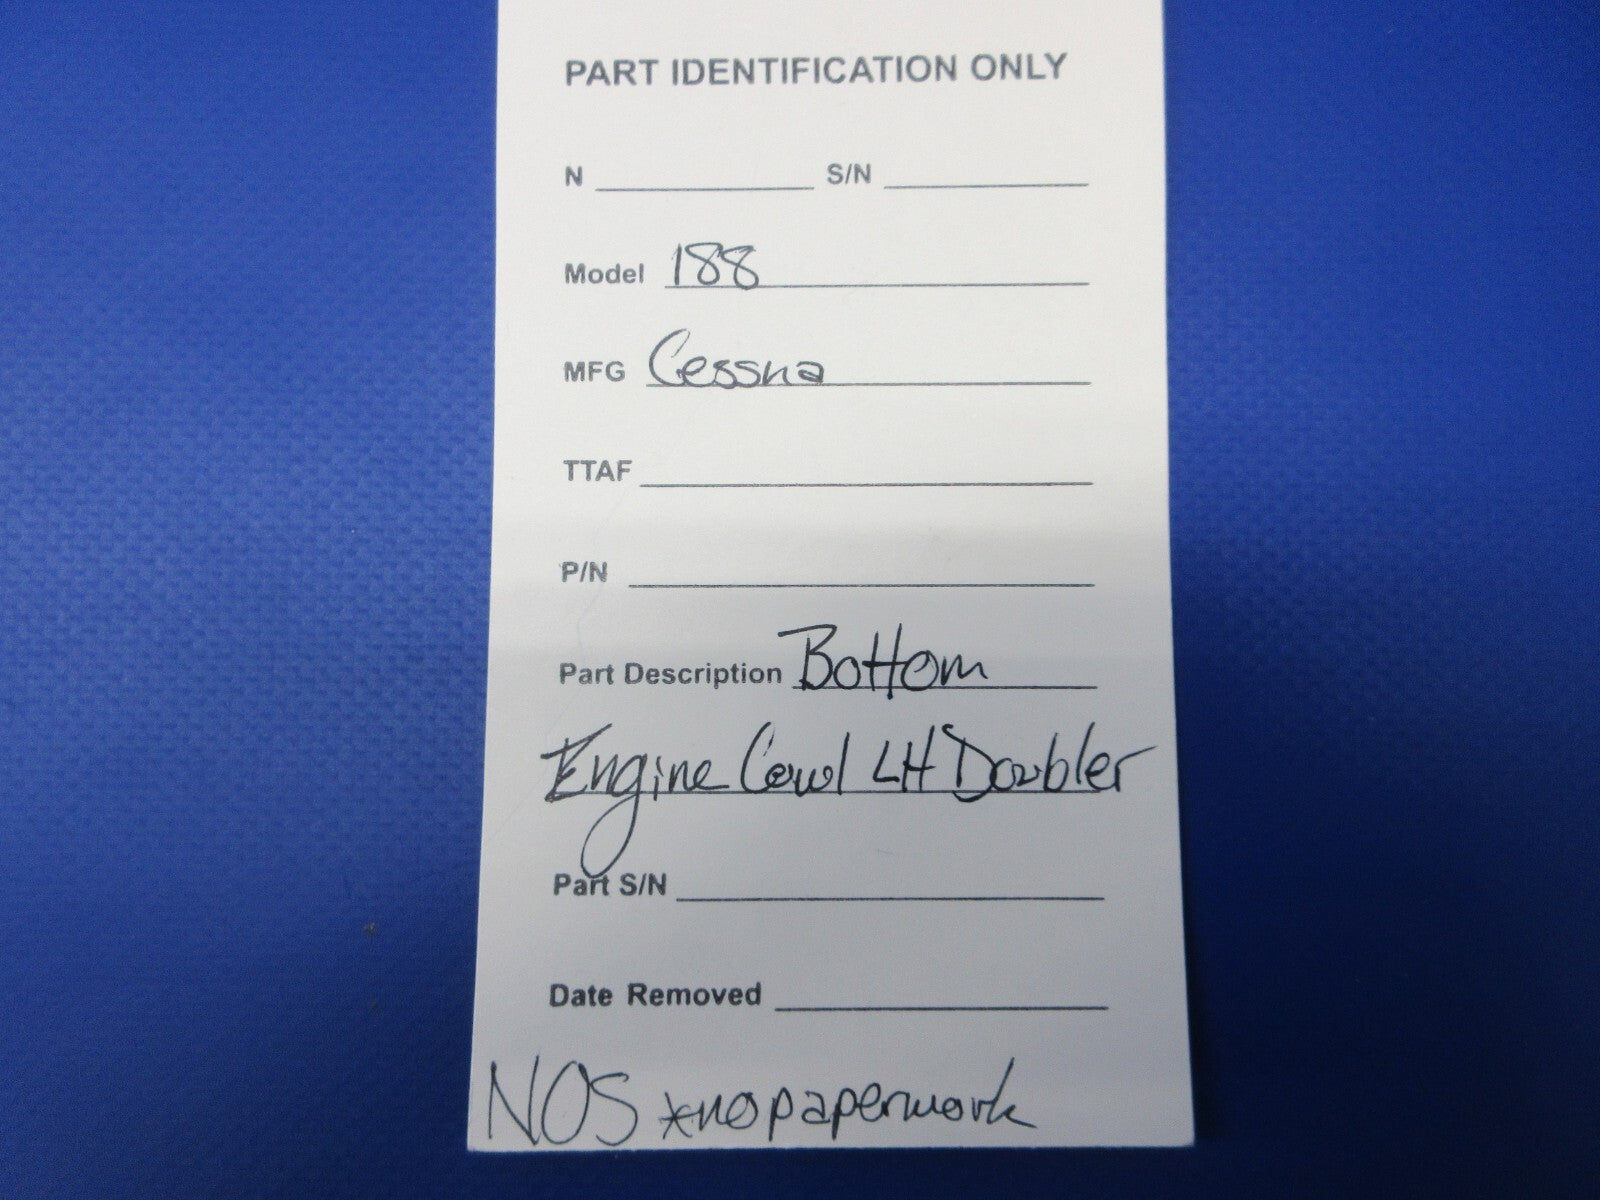 PART IDENTIFICATION ONLY
N S/N
Model 188
MFG Cessna
TTAF
P/N
Part Description Bottom
Engine Cowl LH Doubler
Part S/N
Date Removed
NOS *no paperwork